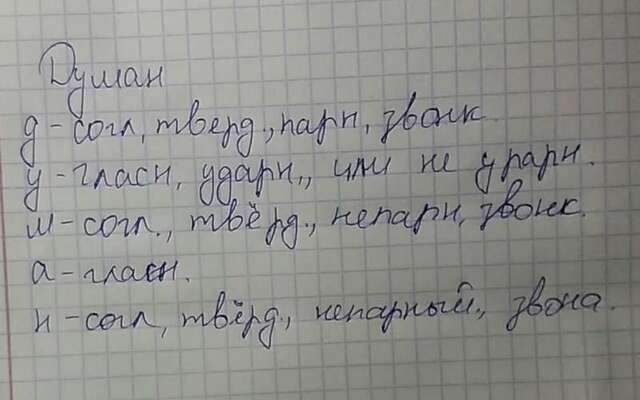 Думан
д-согл, тверд., парн, звонк.
у-гласн, ударн,, или не ударн.
м-согл., твёрд., непарн, звонк.
а-гласн.
н-согл, твёрд., непарный,, звонк.